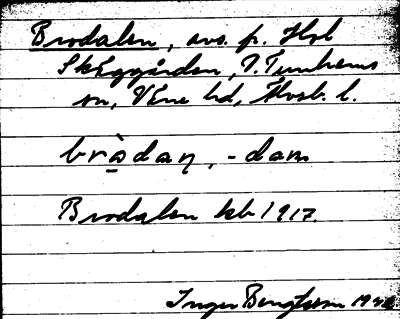 Brodalen, avs. fr. Hol
Skäggården, V. Tunhems
sn, Väne hd, Älvsb. l.
brò̱daṇ, -dam
Brodalen kb 1917.
Inger Bengtsson